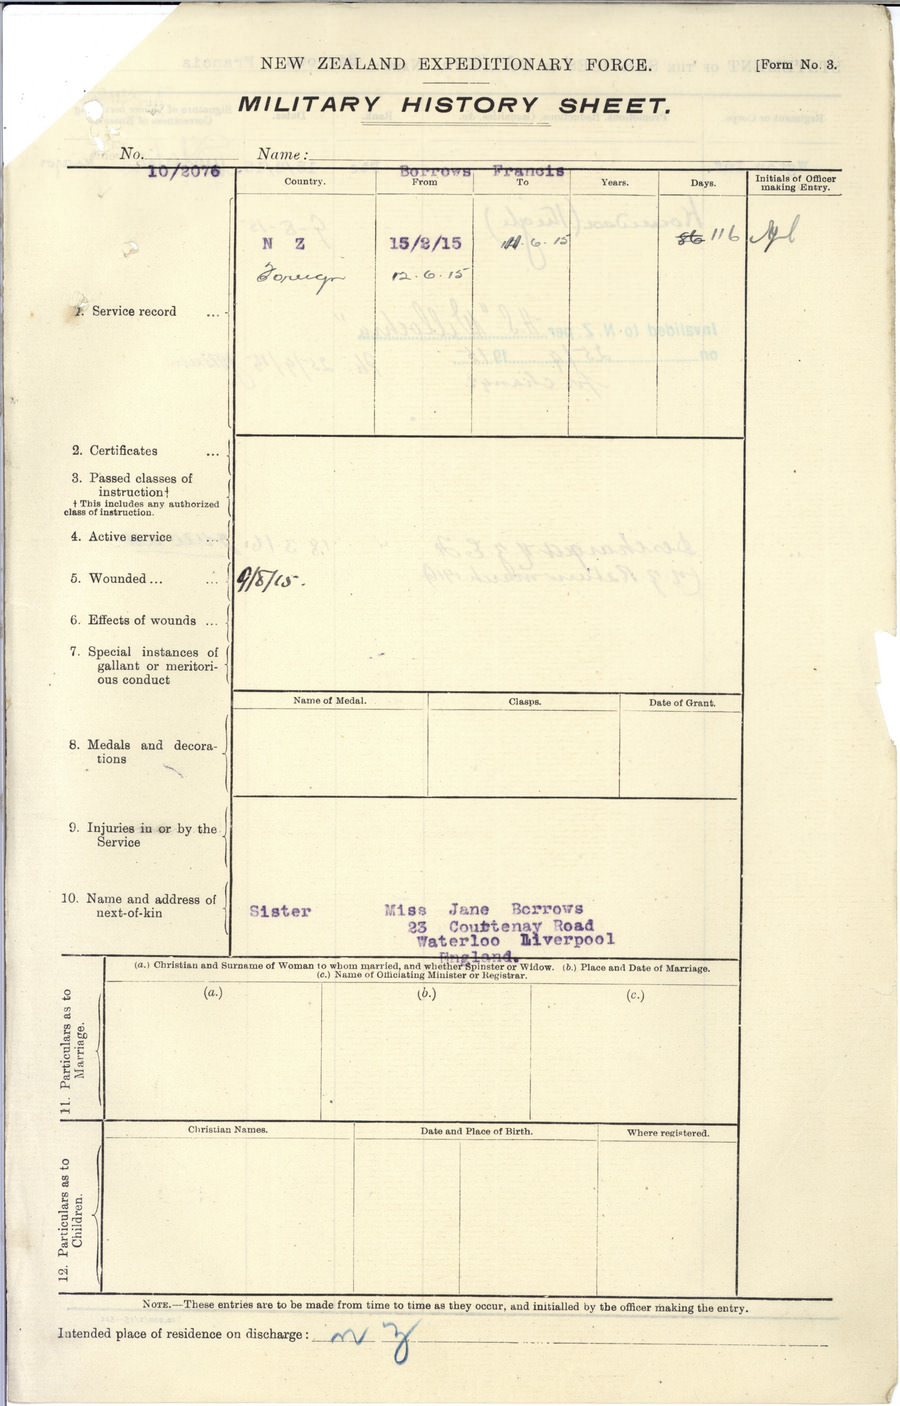 NEW ZEALAND EXPEDITIONARY FORCE. [Form No. 3.
MILITARY HISTORY SHEET.
No. 10/2076 Name: Borrows Francis
Country. From To Years. Days. Initials of Officer making Entry.
N Z 15/2/15 11.6.15 86 116
Foreign 12.6.15
1. Service record ...
2. Certificates ...
3. Passed classes of
instruction†
† This includes any authorized
class of instruction.
4. Active service ...
5. Wounded ... ... 9/8/15.
6. Effects of wounds ...
7. Special instances of
gallant or meritori-
ous conduct
Name of Medal. Clasps. Date of Grant.
8. Medals and decora-
tions
9. Injuries in or by the
Service
10. Name and address of
next-of-kin
Sister Miss Jane Borrows
23 Courtenay Road
Waterloo Liverpool
England.
(a.) Christian and Surname of Woman to whom married, and whether Spinster or Widow. (b.) Place and Date of Marriage.
(c.) Name of Officiating Minister or Registrar.
11. Particulars as to
Marriage.
(a.) (b.) (c.)
Christian Names. Date and Place of Birth. Where registered.
12. Particulars as to
Children.
NOTE.—These entries are to be made from time to time as they occur, and initialled by the officer making the entry.
Intended place of residence on discharge: N Z